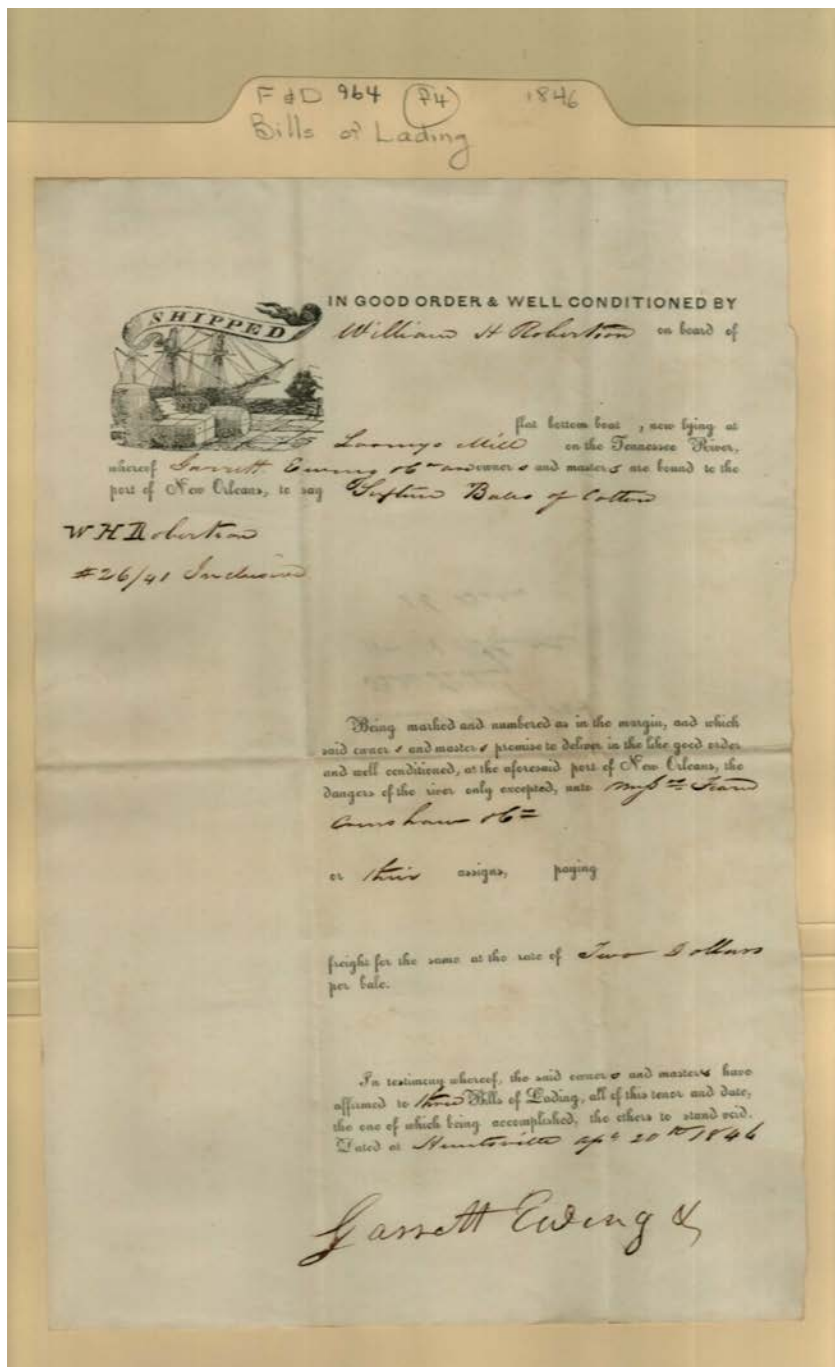 F & D 964 P4 1846
Bills of Lading
SHIPPED
IN GOOD ORDER & WELL CONDITIONED BY
William H Robertson on board of
flat bottom boat , now lying at
Mill on the Tennessee River,
whereof Garrett Ewing & Co are owners and masters are bound to the
port of New Orleans, to say Sixteen Bales of Cotton
W H Robertson
#26/41 Inclusive
Being marked and numbered as in the margin, and which
said owners and masters promise to deliver in the like good order
and well conditioned, at the aforesaid port of New Orleans, the
dangers of the river only excepted, unto Mssrs Fearn
& Co
or their assigns, paying
freight for the same at the rate of Two Dollars
per bale.
In testimony whereof, the said owners and masters have
affirmed to three Bills of Lading, all of this tenor and date,
the one of which being accomplished, the others to stand void.
Dated at Huntsville apl 20th 1846
Garrett Ewing &